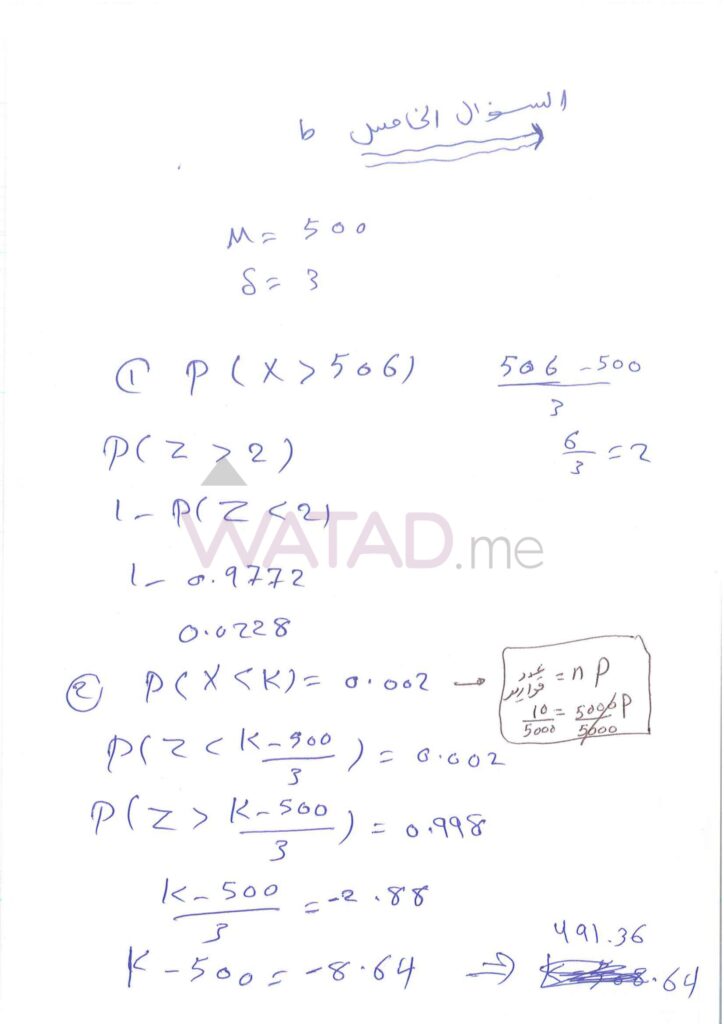 السؤال الخامس b
M = 500
δ = 3
① P(X > 506)
506 - 500 / 3
P(Z > 2)
6/3 = 2
1 - P(Z < 2)
WATAD.me
1 - 0.9772
0.0228
② P(X < K) = 0.002 →
عدد قوارير = n P
10/5000 = 5000 P/5000
P(Z < K - 500 / 3) = 0.002
P(Z > K - 500 / 3) = 0.998
K - 500 / 3 = -2.88
K - 500 = -8.64 ⇒ 491.36
.64